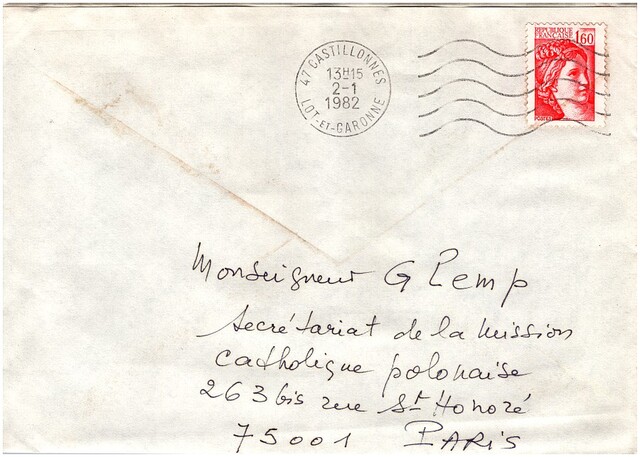 RÉPUBLIQUE
FRANÇAISE
1,60
47 CASTILLONNES
13H15
2-1
1982
LOT-ET-GARONNE
Monseigneur Glemp
Secrétariat de la Mission
catholique polonaise
263 bis rue St Honoré
75001 PARIS